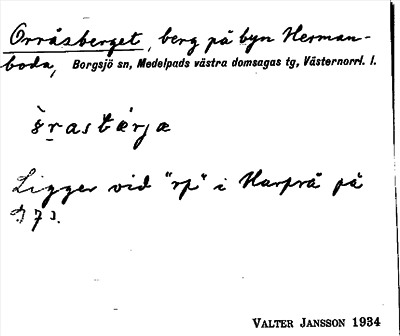 Orråsberget, berg på byn Herman-
boda, Borgsjö sn, Medelpads västra domsagas tg, Västernorrl. l.
Ligger vid "rp" i Harprå på
VALTER JANSSON 1934